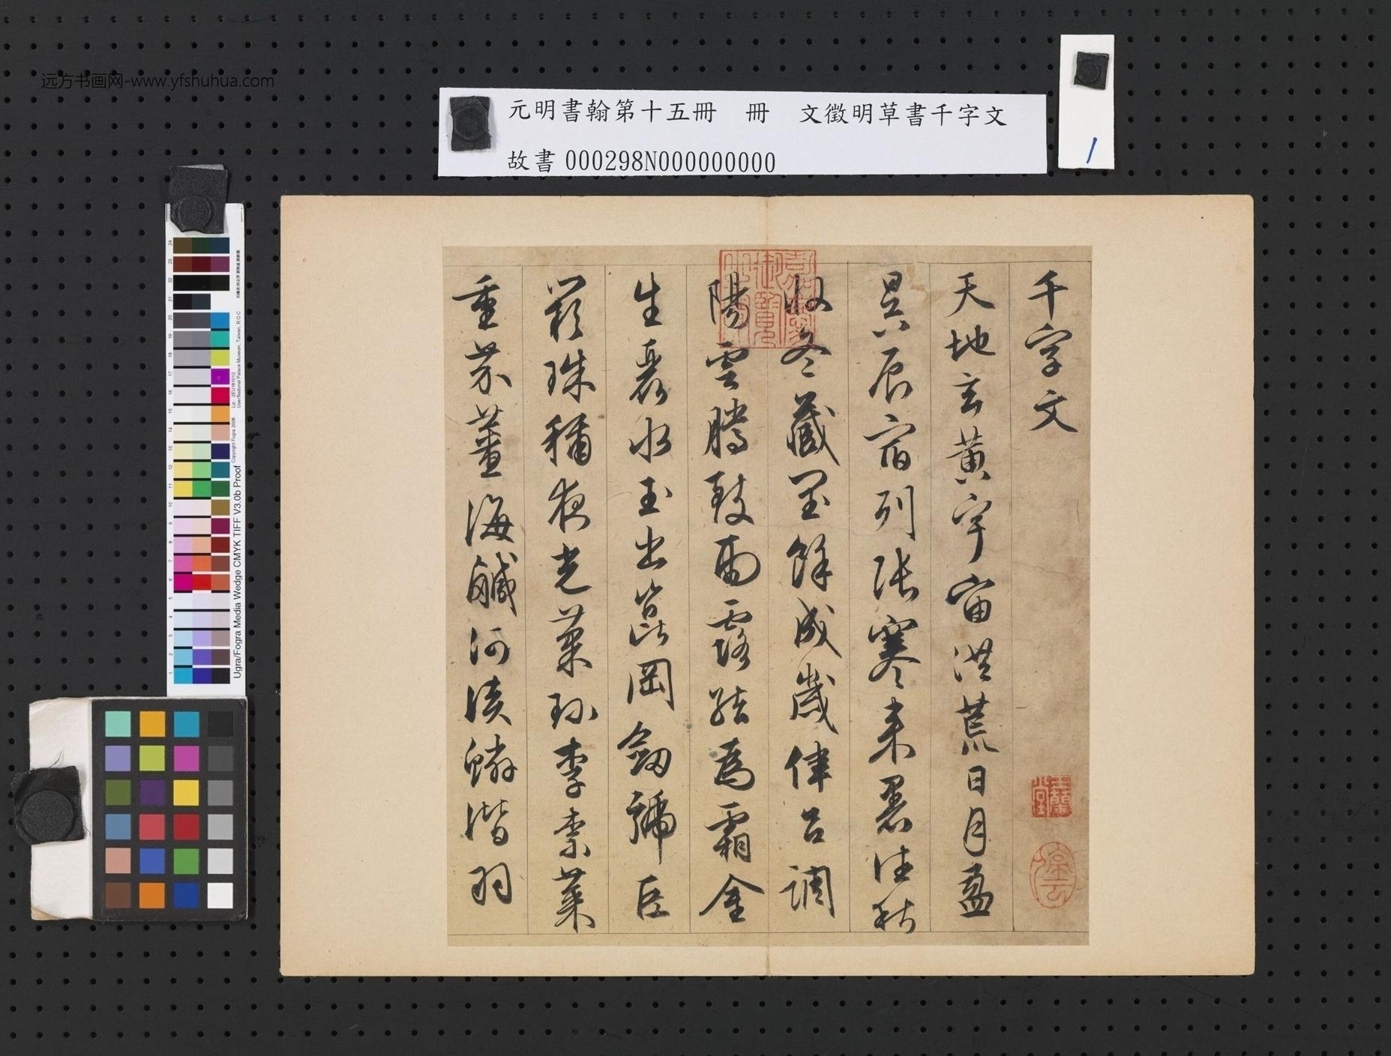 远方书画网-www.yfshuhua.com
元明書翰第十五冊 冊 文徵明草書千字文
故書 000298N000000000
1
千字文
天地玄黃宇宙洪荒日月盈
昃辰宿列張寒來暑往秋
收冬藏閏餘成歲律呂調
陽雲騰致雨露結為霜金
生麗水玉出崑岡劔號巨
闕珠稱夜光菓珍李柰菜
重芥薑海鹹河淡鱗潛羽
Ugra/Fogra Media Wedge CMYK TIFF V3.0b Proof